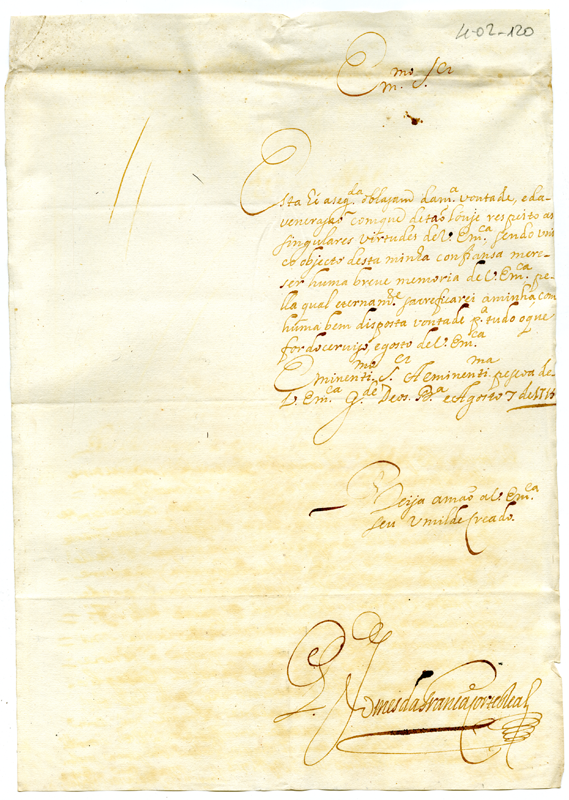 4-02-120
Em.mo S.or
Esta hé a seg.da obligasam da m.a vontade, e da
veneraçaõ com que de taõ louje respeito as
singulares virtudes de V. Em.ca sendo uni
co objecto desta minha confiansa mere-
ser huma breve memoria de V. Em.ca pe-
lla qual eternam.te a minha com
huma bem disposta vontade p.a tudo o que
for do serviso, e gosto de V. Em.ca
Eminenti.mo S.or A eminenti.ma pesoa de
V. Em.ca G.de Deos. B.a e Agosto 7 de
Beija a maõ a V. Em.ca
seu Umilde Creado.
Gomes da Franca Corte Real